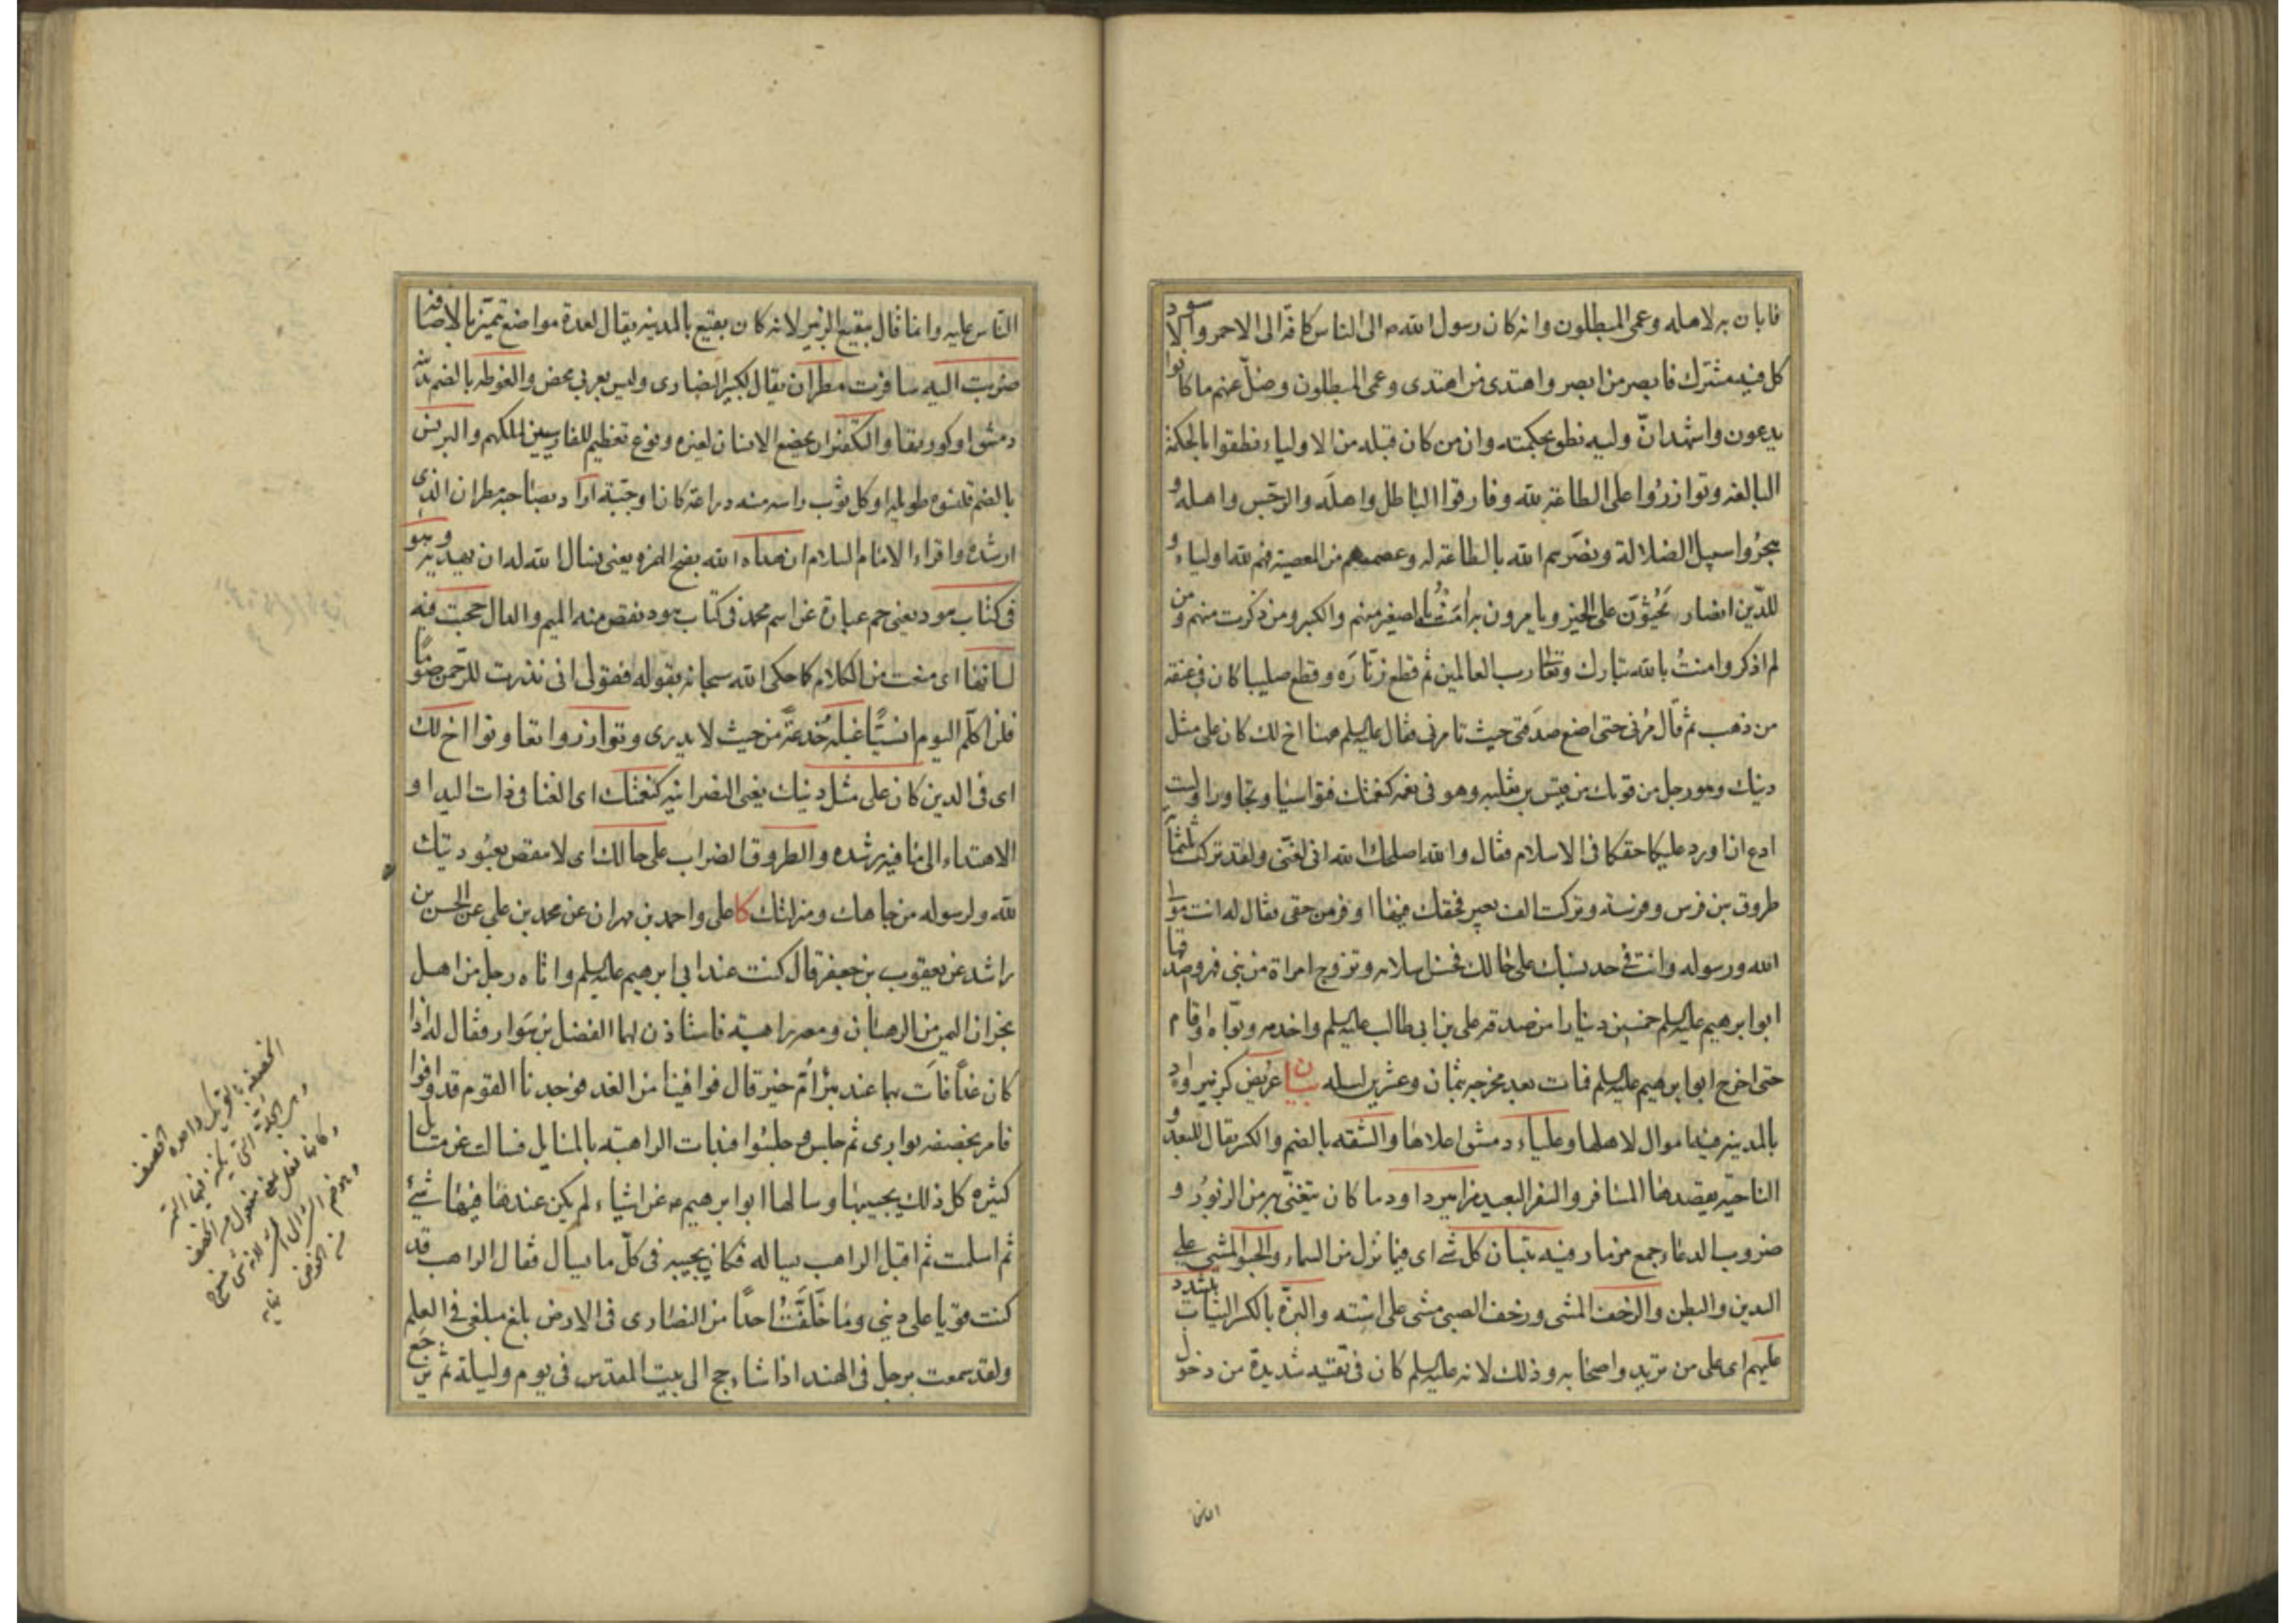 فابان به لاهله وعمى المبطلون وانه كان رسول الله ص الى الناس كافة الى الاحمر والاسود
كل فيه مشترك فابصر من ابصر واهتدى من اهتدى وعمى المبطلون وضلّ عنهم ما كانوا
يدعون واشهد انّ وليه نطق بحكمته وان من كان قبله من الاولياء نطقوا بالحكمة
البالغه وتوازرُوا على الطاعة لله وفارقوا الباطل واهلَه والرجس واهله و
هجرُوا سبيل الضلالة ونصَرهم الله بالطاعة له وعصمهم من المعصية فهم لله اولياء و
للدّين انصار يَحُثوّن على الخير ويامرون به امَنتُ بالصغير منهم والكبير ومن ذكرت منهم ومن
لم اذكر وامنتُ بالله تبارك وتعالى رب العالمين ثم قطع زنّارَه وقطع صليبا كان فى عنقه
من ذهب ثم قال مُرنى حتى اضع صدَقتى حيث تامرنى فقال عليه السلم ههنا اخ لك كان على مثل
دينك وهو رجل من قومك من قيس بن ثعلبه وهو فى نعمه كنعمتك فتواسيا وتجاورا ولست
ادع ان اورد عليكما حقكما فى الاسلام فقال والله اصلحك الله انى لغنّى ولقد تركت ثلثمائة
طروق بين فرس وفرسة وتركت الف بعير فحقك فيها اوفر من حقى فقال له انت مولى
الله ورسوله وانت فى حد نسبك على حالك فحسن اسلامه وتزوج امراة من بنى فهر واصدقها
ابو ابرهيم عليه السلم خمسين دينارا من صدقه على بن ابى طالب عليه السلم واخدمه وبوّاه واقام
حتى اخرج ابو ابرهيم عليه السلم فمات بعد مخرجه بثمان وعشرين ليله بيان عريض كزبير واد
بالمدينه فيه اموال لاهلها وعلياء دمشق اعلاها والشقه بالضم والكسر يقال للبعد و
الناحيّه يقصدها المسافر والسفر البعيد مزامير داود ما كان يتغنّى به من الزبور و
ضروب الدعاء جمع مزمار فيه تبيان كل شئ اى فيما نزل من السماء والحبو المشى على
اليدين والبطن والزحف المشى وزحف الصبى مشى على استه والبزّة بالكسر الثياب يشدد
عليهم اى على من يريد واصحابه وذلك لانه عليه السلم كان فى تقيه شديدة من دخول
الناس
الناس عليه وانما قال ببقيع الزبير لانه كان بقيع بالمدينه يقال لعدة مواضع تميّز بالاضافة
ضربت اليه سافرت مطران يقال لكبير النصارى وليس بعربى محض والغوطه بالضم مدينة
دمشق او كورتها والتكفير ان يخضع الانسان لغيره ونوع تعظيم للفارسيين لملكهم والبرنس
بالضم قلنسوه طويله او كل ثوب راسه منه دراعة كان او جبّة اراد بصاحبه مطران الذى
ارشده واقراء الامام السلام ان هداه الله بفتح الهمزه يعنى يسال الله له ان يهديه وهو
فى كتاب هود يعنى حم عبارة عن اسم محمد فى كتاب هود نقص منه الميم والدال حجبت فيه
لسانها اى منعت من الكلام كما حكى الله سبحانه بقوله فقولى انى نذرت للرحمن صوما
فلن اكلّم اليوم انسيّا غيلة خدعةً من حيث لا يدرى وتوازروا تعاونوا اخ لك
اى فى الدين كان على مثل دينك يعنى النصرانيه كنعمتك اى الغنا وذات اليد او
الاهتداء الى ما فيه رشده والطروق الضراب على حالك اى لا ينقص بعبُوديتك
لله ولرسوله من جاهك ومنزلتك كا على واحمد بن مهران عن محمد بن على عن الحسن بن
راشد عن يعقوب بن جعفر قال كنت عند ابى ابرهيم عليه السلم واتاه رجل من اهل
نجران اليمن من الرهبان ومعه راهبة فاستاذن لهما الفضل بن سَوار فقال له اذا
كان غدًا فات بهما عند بئر امّ خير قال فوافينا من الغد فوجدنا القوم قد وافوا
فامر بخصفه بوارى ثم جلس وجلسُوا فبدات الراهبة بالمسايل فسالت عن مسايل
كثيره كل ذلك يجيبها وسالها ابو ابرهيم ص عن اشياء لم يكن عندها فيها شئ
ثم اسلمت ثم اقبل الراهب يساله فكان يجيبه فى كلّ ما يسال فقال الراهب قد
كنت قويا على دينى وما خَلّفتُ احدًا من النصارى فى الارض بلغ مبلغى فى العلم
ولقد سمعت برجل فى الهند اذا شاء حج الى بيت المقدس فى يوم وليلة ثم يرجع
الخصفة بالتحريك واحدة الخصف
وهى الجلة التى يكنز فيها التمر
وكانها فعل بمعنى مفعول من الخصف
وهو ضم الشئ الى الشئ لانه شئ منسوج
من الخوص نهايه